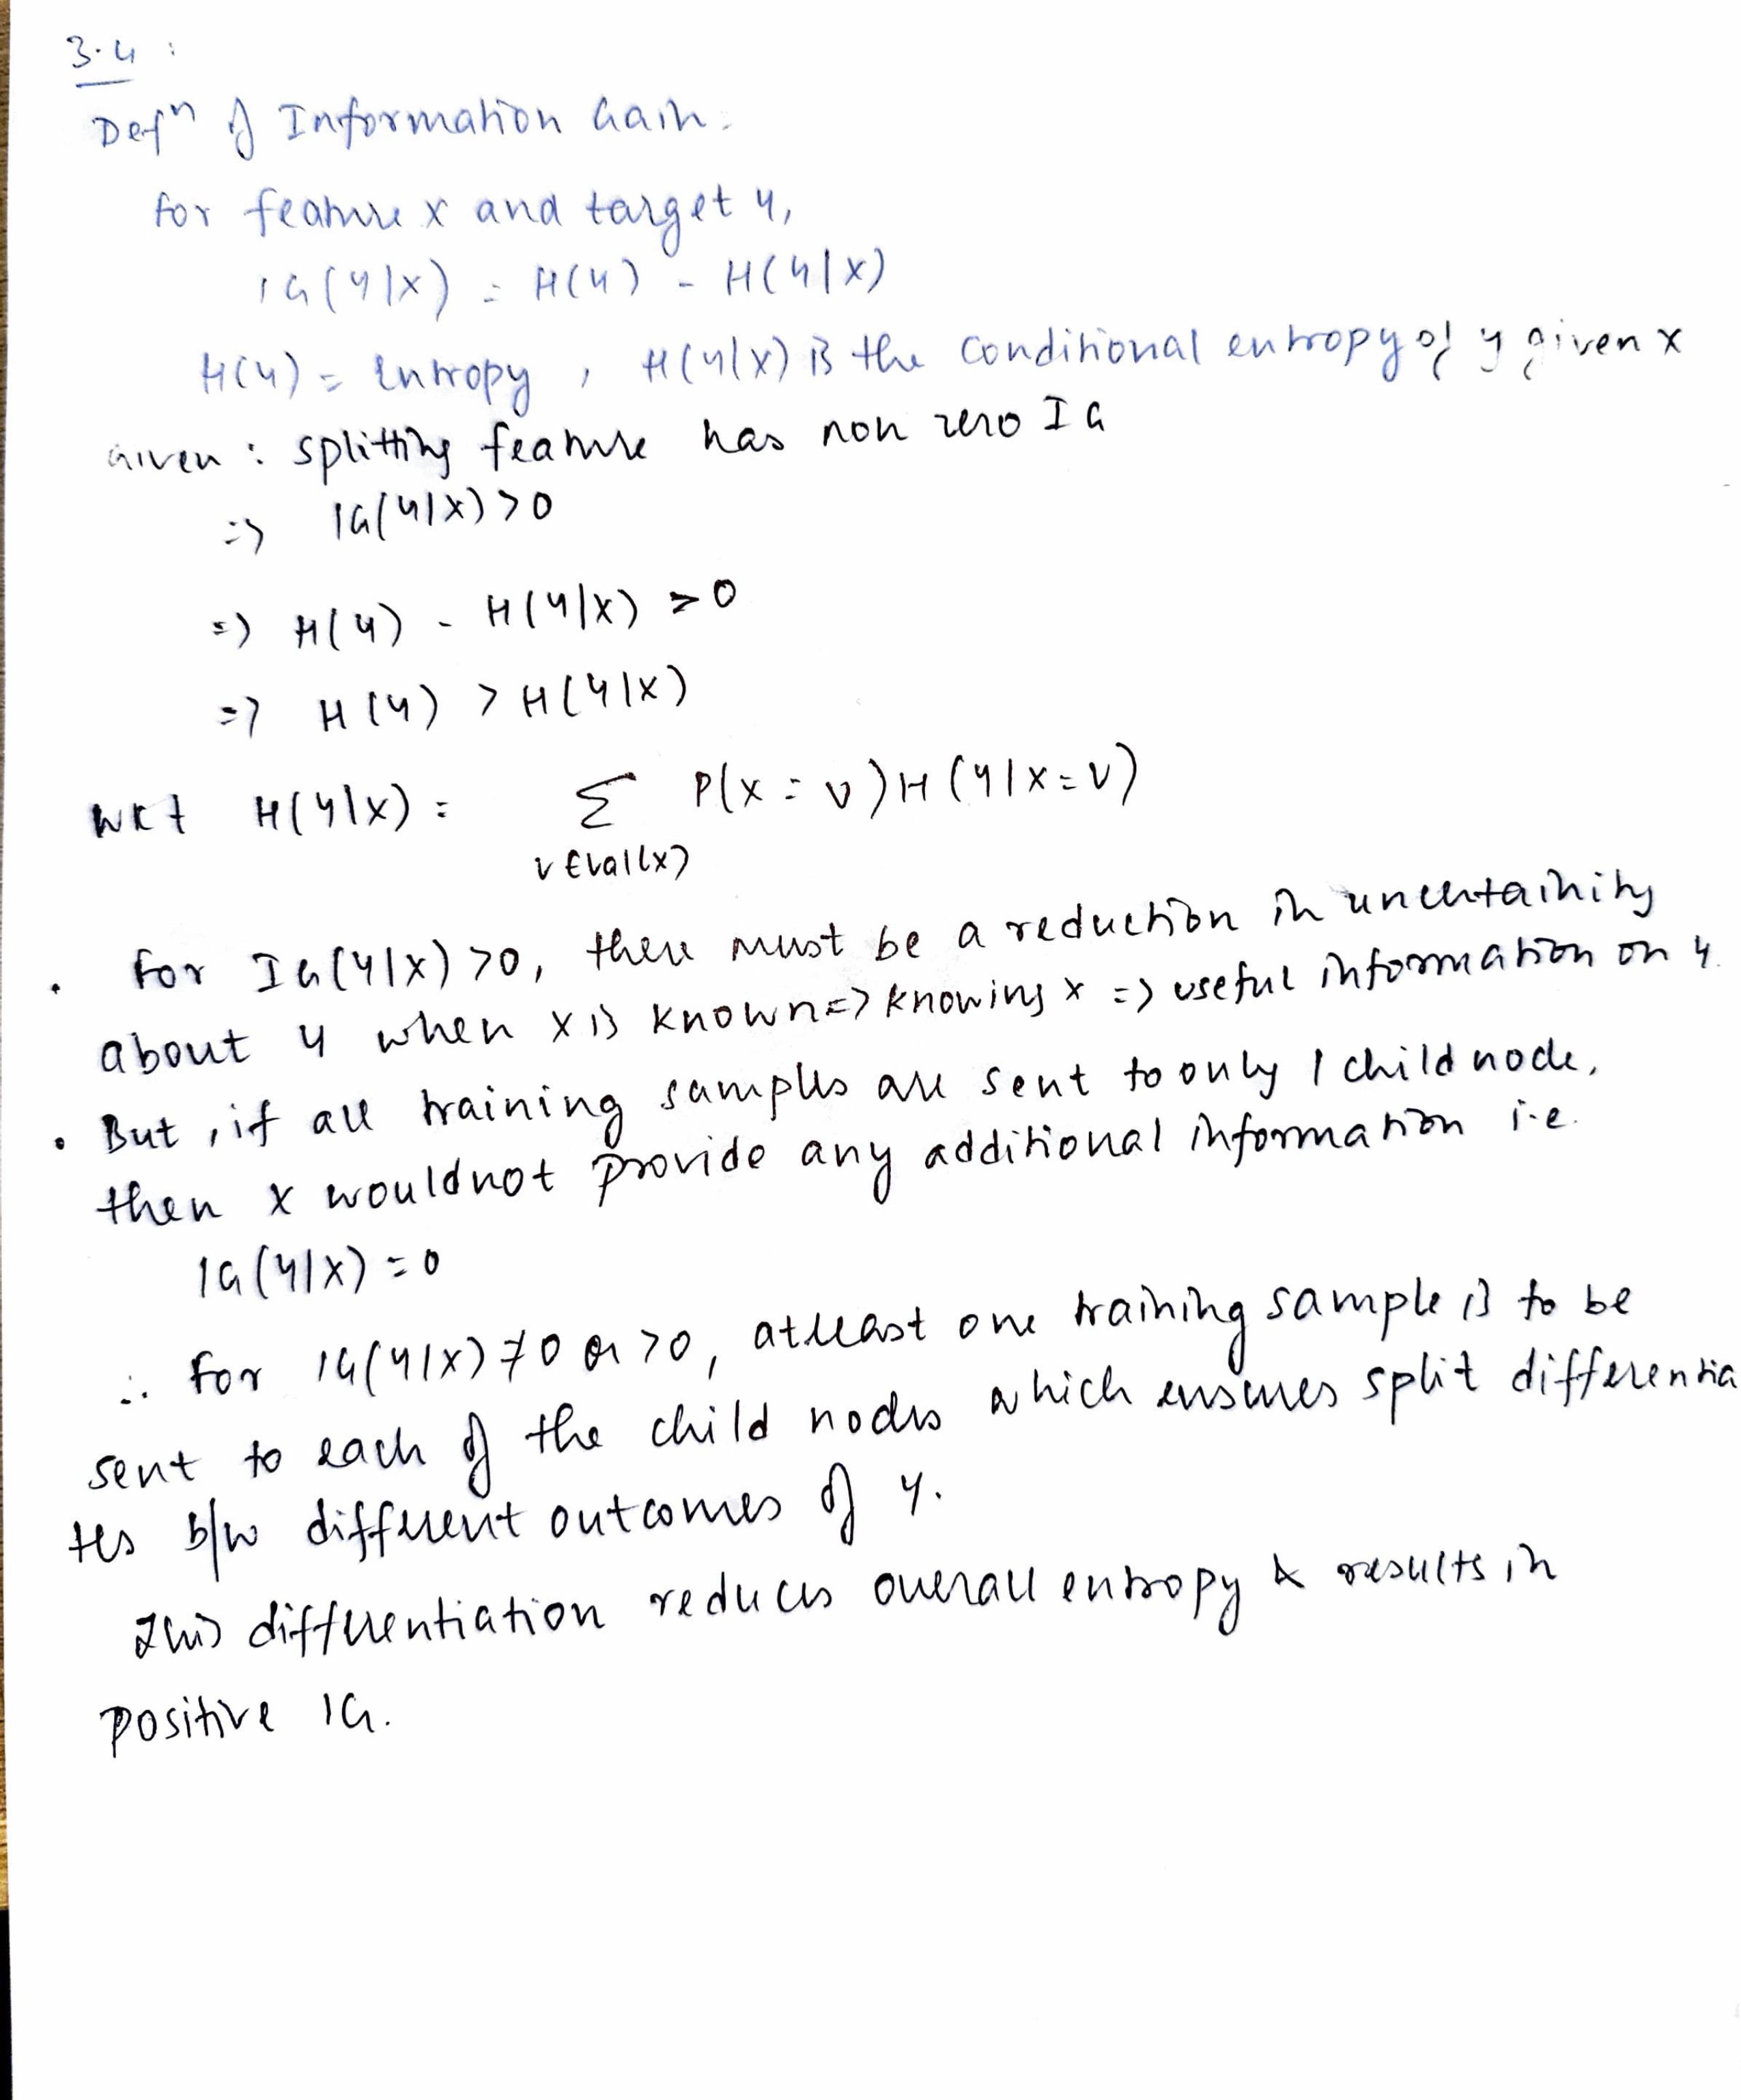 3.4 :
Defⁿ of Information Gain.
For feature x and target y,
IG(y|x) = H(y) - H(y|x)
H(y) = Entropy , H(y|x) is the conditional entropy of y given x
Given : splitting feature has non zero IG
=> IG(y|x) > 0
=> H(y) - H(y|x) > 0
=> H(y) > H(y|x)
WKT H(y|x) = Σ P(x = v) H (y|x = v)
v ∈ val(x)
• For IG(y|x) > 0, there must be a reduction in uncertainity
about y when x is known => knowing x => useful information on y.
• But , if all training samples are sent to only 1 child node,
then x would not provide any additional information i.e.
IG(y|x) = 0
∴ For IG(y|x) ≠ 0 or > 0, atleast one training sample is to be
sent to each of the child nodes which ensures split differentia
tes b/w different outcomes of y.
This differentiation reduces overall entropy & results in
positive IG.